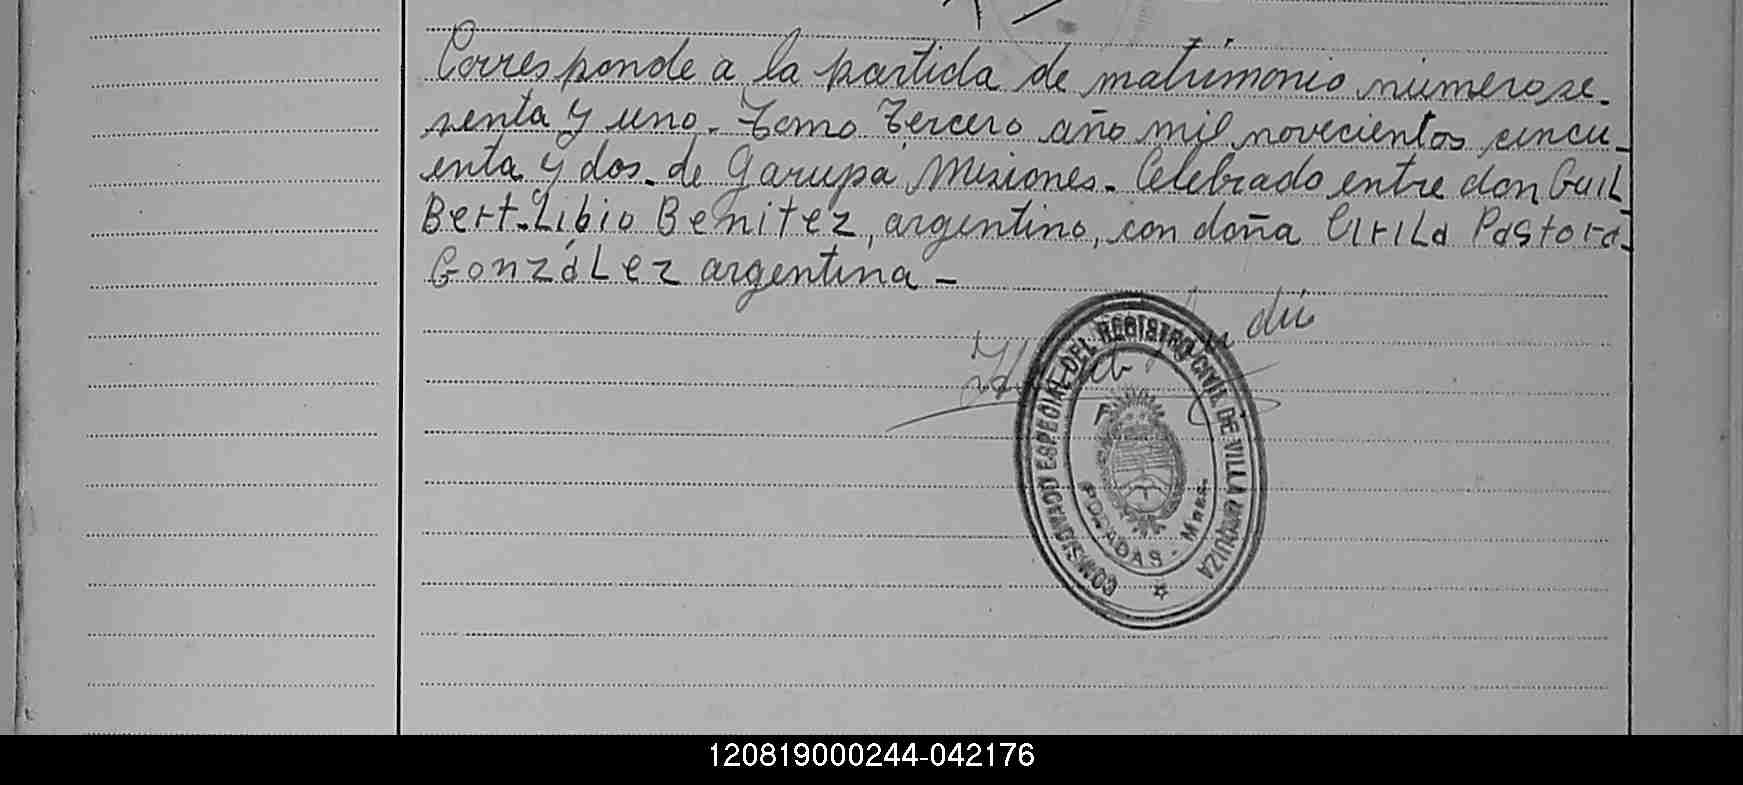 Corresponde a la partida de matrimonio número se-
senta y uno. Tomo Tercero año mil novecientos cincu-
enta y dos. de Garupa, Misiones. Celebrado entre don Guil-
Bert. Libio Benitez, argentino, con doña CIrILa Pastora-
GonzáLez argentina -
COMISIONADO ESPECIAL DEL REGISTRO CIVIL DE VILLA URQUIZA
POSADAS - Mnes.
120819000244-042176